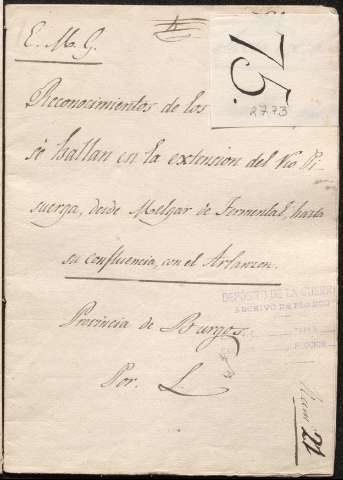 E. M. G.
75.
2773
Reconocimientos de los
sè hallan en la extension del Rio Pi-
suerga, desde Melgar de Fermental, hasta
su confluencia, con el Arlanzon.
DEPOSITO DE LA GUERRA
ARCHIVO DE PLANOS
Provincia de Burgos.
Por. L.
Num.º 21